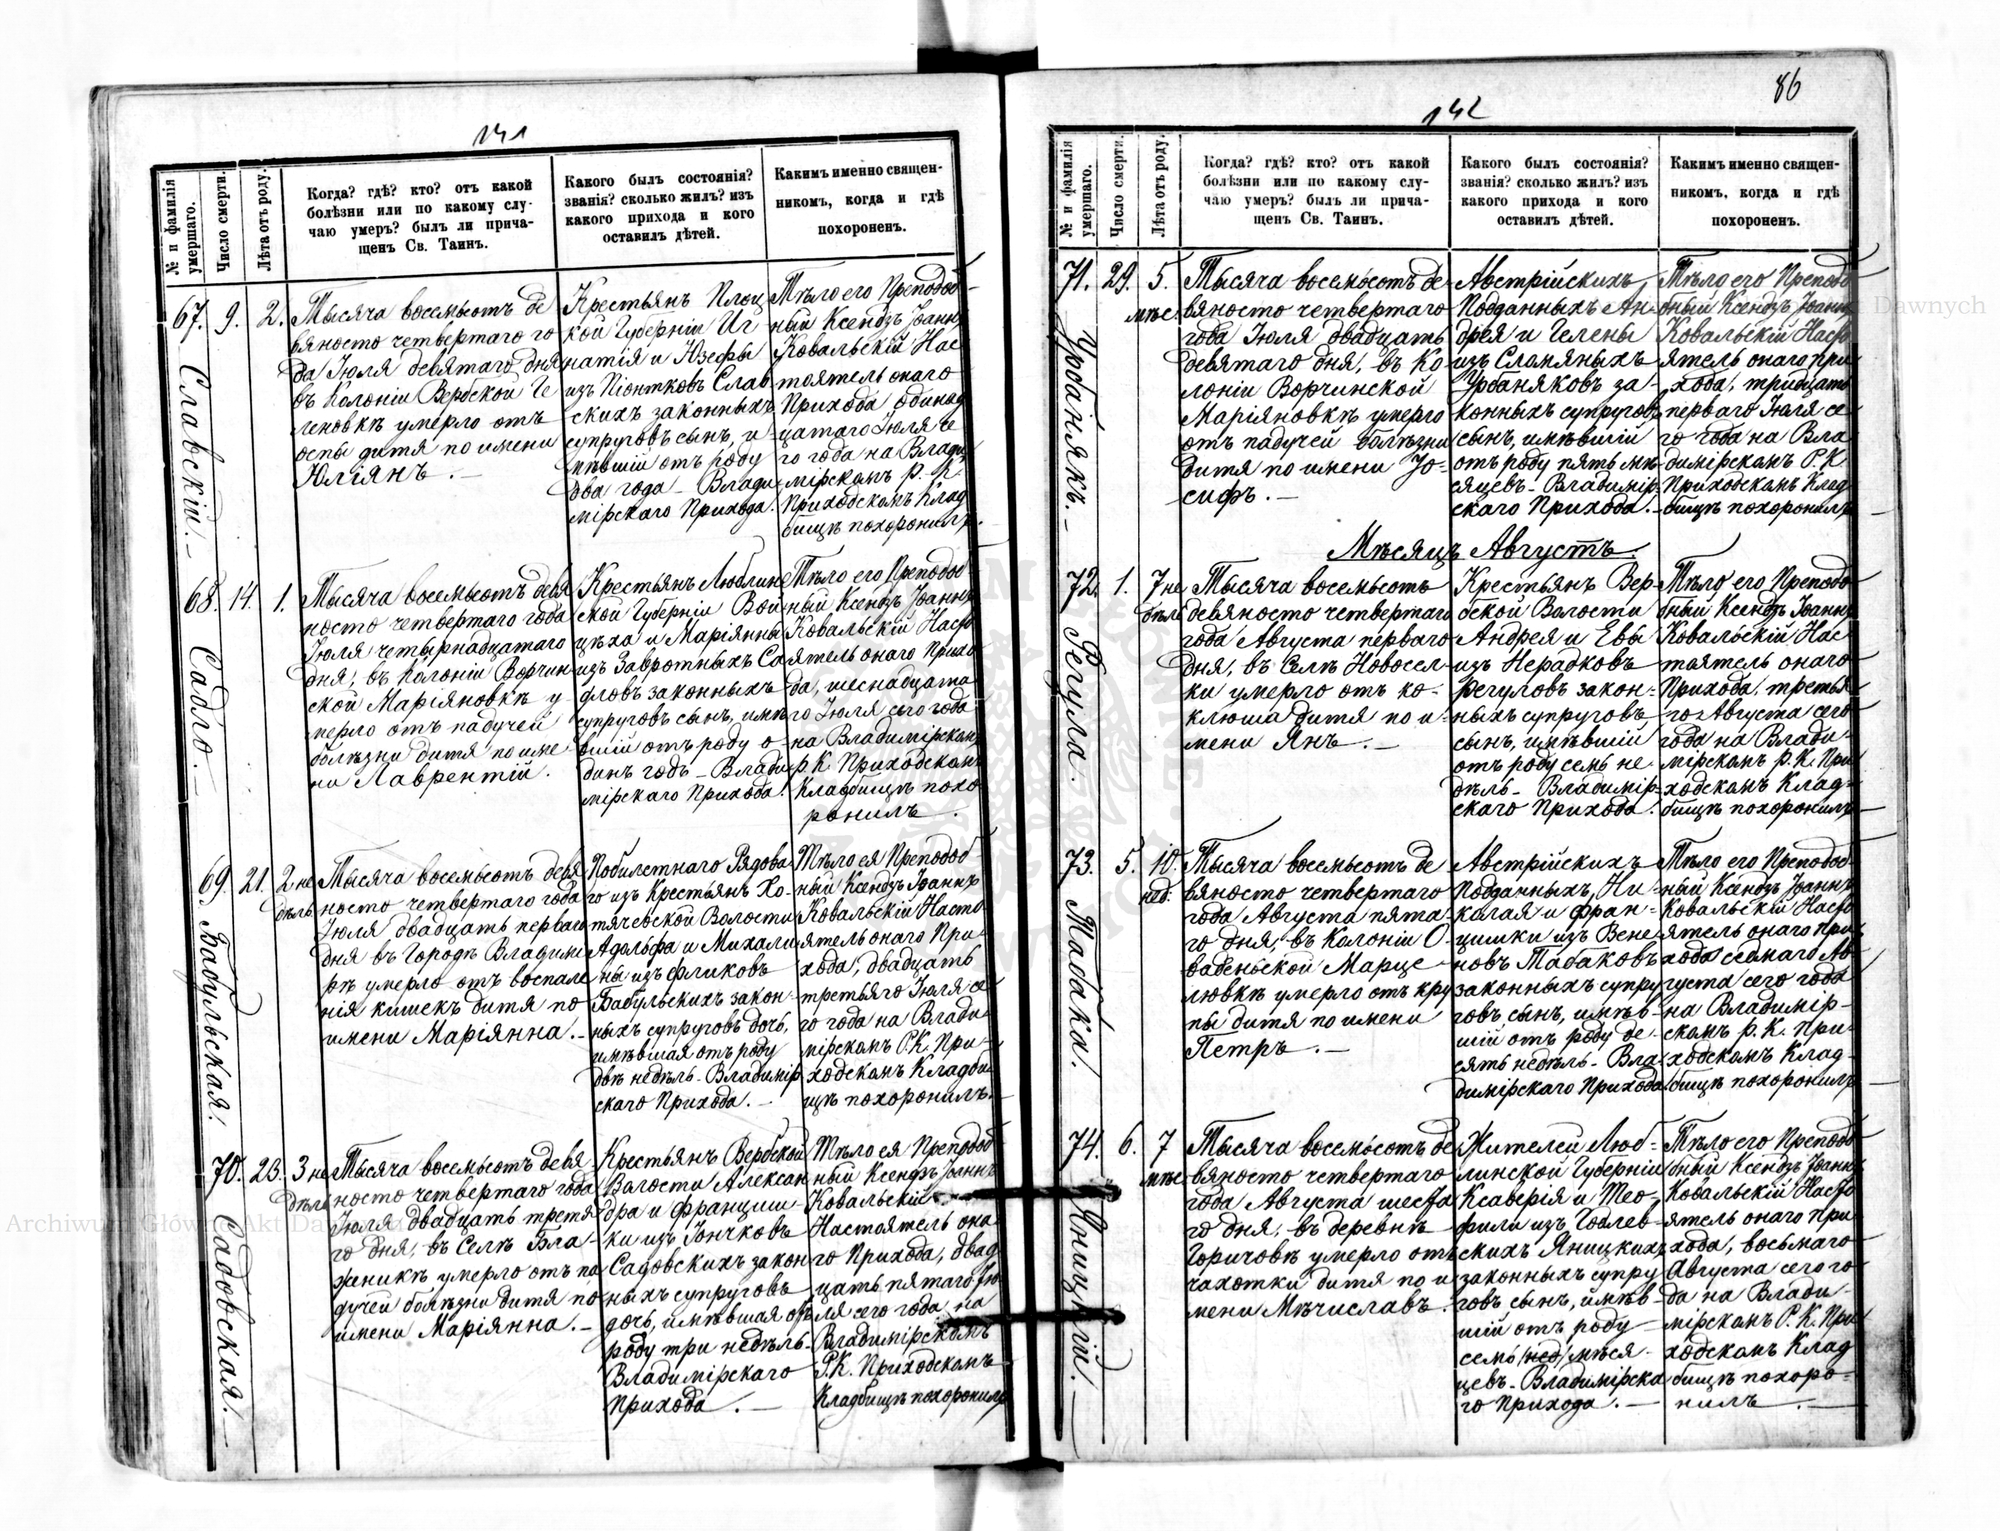 141
№ и фамилія умершаго.
Число смерти.
Лѣта отъ роду.
Когда? гдѣ? кто? отъ какой
болѣзни или по какому слу-
чаю умеръ? былъ ли прича-
щенъ Св. Таинъ.
Какого былъ состоянія?
званія? сколько жилъ? изъ
какого прихода и кого
оставилъ дѣтей.
Какимъ именно священ-
никомъ, когда и гдѣ
похороненъ.
67. Славскій.
9.
2.
Тысяча восемьсотъ де
вяносто четвертаго го
да Іюля девятаго дня
въ Колоніи Вербской Ге
леновкѣ умерло отъ
оспы дитя по имени
Юліянъ.
Крестьянъ Плоц
кой Губерніи Иг
натія и Юзефы
изъ Піонтковъ Слав
скихъ законныхъ
супруговъ сынъ, и
мѣвшій отъ роду
два года - Влади
мірскаго Прихода.
Тѣло его Преподоб-
ный Ксендзъ Іоаннъ
Ковальскій Нас
тоятель онаго
Прихода одинад
цатаго Іюля се
го года на Влади
мірскомъ Р. К.
Приходскомъ Клад
бищѣ похоронилъ.
68. Садло.
14.
1.
Тысяча восемьсотъ девя
носто четвертаго года
Іюля четырнадцатаго
дня, въ Колоніи Ворчин
ской Маріяновкѣ у-
мерло отъ падучей
болѣзни дитя по име-
ни Лаврентій.
Крестьянъ Люблин
ской Губерніи Вой
цѣха и Маріянны
изъ Завротныхъ Са
дловъ законныхъ
супруговъ сынъ, имѣ
вшій отъ роду о
динъ годъ - Влади
мірскаго Прихода.
Тѣло его Преподоб-
ный Ксендзъ Іоаннъ
Ковальскій Насто
ятель онаго Прихо
да, шеснадцата
го Іюля сего года
на Владимірскомъ
Р.К. Приходскомъ
Кладбищѣ похо
ронилъ.
69. Бабульская.
21.
2 не
дѣль
Тысяча восемьсотъ девя
носто четвертаго года
Іюля двадцать перваго
дня въ Городѣ Владими
рѣ умерло отъ воспале
нія кишекъ дитя по
имени Маріянна.-
Побилетнаго Рядова
го изъ Крестьянъ Хо-
тячевской Волости
Адольфа и Михали
ны изъ Фликовъ
Бабульскихъ закон-
ныхъ супруговъ дочь,
имѣвшая отъ роду
двѣ недѣль - Владимір
скаго Прихода.-
Тѣло ея Преподоб
ный Ксендзъ Іоаннъ
Ковальскій Насто-
ятель онаго При-
хода, двадцать
третьяго Іюля се
го года на Влади-
мірскомъ Р.К. При-
ходскомъ Кладби
щѣ похоронилъ.
70. Садовская.
23.
3 не
дѣль
Тысяча восемьсотъ девя
носто четвертаго года
Іюля двадцать третя
го дня, въ Селѣ Вла-
женикѣ умерло отъ па
дучей болѣзни дитя по
имени Маріянна.-
Крестьянъ Вербской
Волости Алексан
дра и Францищ
ки изъ Іончковъ
Садовскихъ закон
ныхъ супруговъ
дочь, имѣвшая отъ
роду три недѣль-
Владимірскаго
Прихода.
Тѣло ея Преподоб
ный Ксендзъ Іоаннъ
Ковальскій
Настоятель она
го Прихода, двад
цать пятаго Ію
ля сего года на
Владимірскомъ
Р.К. Приходскомъ
Кладбищѣ похоронилъ
86
142
№ и фамилія умершаго.
Число смерти.
Лѣта отъ роду.
Когда? гдѣ? кто? отъ какой
болѣзни или по какому слу-
чаю умеръ? былъ ли прича-
щенъ Св. Таинъ.
Какого былъ состоянія?
званія? сколько жилъ? изъ
какого прихода и кого
оставилъ дѣтей.
Какимъ именно священ-
никомъ, когда и гдѣ
похороненъ.
71. Урбанякъ.
29.
5.
мѣс
Тысяча восемьсотъ де
вяносто четвертаго
года Іюля двадцать
девятаго дня, въ Ко
лоніи Ворчинской
Маріяновкѣ умерло
отъ падучей болѣзни
дитя по имени Іо-
сифъ.-
Австрійскихъ
Подданныхъ Ан-
дрея и Гелены
изъ Сломяныхъ
Урбаняковъ за-
конныхъ супруговъ
сынъ, имѣвшій
отъ роду пять мѣ
сяцевъ - Владимір
скаго Прихода.-
Тѣло его Преподо
бный Ксендзъ Іоаннъ
Ковальскій Насто
ятель онаго При
хода, тридцать
перваго Іюля се
го года на Вла
димірскомъ Р.К.
Приходскомъ Клад
бищѣ похоронилъ
Мѣсяцъ Августъ
72. Регула.
1.
7 не
дѣль
Тысяча восемьсотъ
девяносто четвертаго
года Августа перваго
дня, въ Селѣ Новосел-
ки умерло отъ ко-
клюша дитя по и-
мени Янъ.-
Крестьянъ Вер-
бской Волости
Андрея и Евы
изъ Нерадковъ
Регуловъ закон-
ныхъ супруговъ
сынъ, имѣвшій
отъ роду семь не
дѣль - Владимір-
скаго Прихода.
Тѣло его Преподо
бный Ксендзъ Іоаннъ
Ковальскій Нас-
тоятель онаго
Прихода, третья
го Августа сего
года на Влади-
мірскомъ Р.К. При
ходскомъ Клад-
бищѣ похоронилъ
73. Табака.
5.
10.
нед.
Тысяча восемьсотъ де
вяносто четвертаго
года Августа пята-
го дня, въ Колоніи О-
ваденьской Марце-
лювкѣ умерло отъ кру
пы дитя по имени
Петръ.-
Австрійскихъ
Подданныхъ, Ни-
колая и Фран-
цишки изъ Вене
новъ Табаковъ
законныхъ супру
говъ сынъ, имѣв-
шій отъ роду де-
сять недѣль - Вла-
димірскаго Прихода
Тѣло его Преподоб-
ный Ксендзъ Іоаннъ
Ковальскій Насто
ятель онаго При
хода седмаго Ав
густа сего года
на Владимір-
скомъ Р. К. При-
ходскомъ Клад-
бищѣ похоронилъ
74. Яницкій.
6.
7
мѣс
Тысяча восемьсотъ де
вяносто четвертаго
года Августа шеста
го дня, въ деревнѣ
Горичовѣ умерло отъ
чахотки дитя по и
мени Мѣчиславъ.
Жителей Люб-
линской Губерніи
Ксаверія и Тео-
фили изъ Годлев-
скихъ Яницкихъ
законныхъ супру
говъ сынъ, имѣв-
шій отъ роду
семь (нед) мѣся-
цевъ - Владимірска
го Прихода.-
Тѣло его Преподо
бный Ксендзъ Іоаннъ
Ковальскій Насто
ятель онаго При
хода, восьмаго
Августа сего го-
да на Влади-
мірскомъ Р.К. При
ходскомъ Клад
бищѣ похоро-
нилъ.-